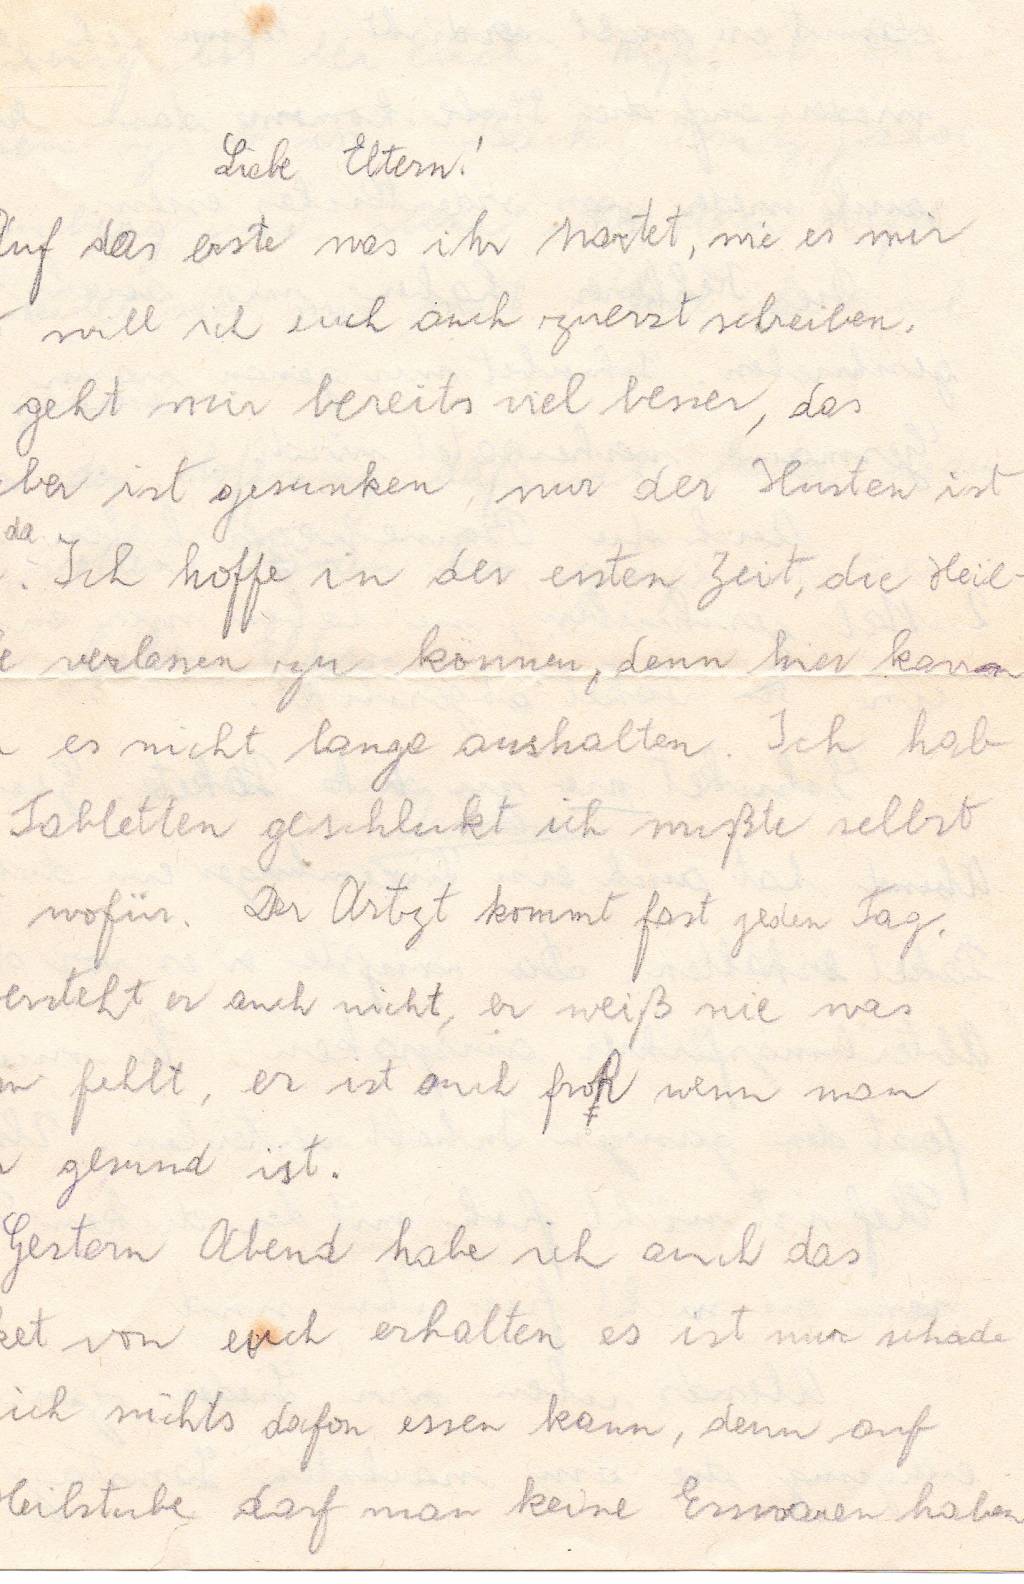 Liebe Eltern!
Auf das erste was ihr wartet, wie es mir
will ich euch auch zuerst schreiben.
geht mir bereits viel besser, das
eber ist gesunken, nur der Husten ist
da. Ich hoffe in der ersten Zeit, die Heil-
e verlassen zu können, denn hier kann
es nicht lange aushalten. Ich hab
Tabletten geschlukt ich mußte selbst
wofür. Der Artzt kommt fast jeden Tag.
ersteht er auch nicht, er weiß nie was
fehlt, er ist auch froh wenn man
gesund ist.
Gestern Abend habe ich auch das
ket von euch erhalten es ist nur schade
ich nichts dafon essen kann, denn auf
Heilstube darf man keine Esswaren haben